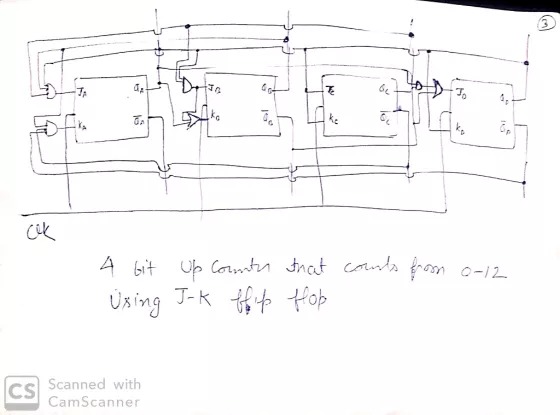 3
J_A Q_A J_B Q_B Q_C J_D Q_D
K_A Q̅_A K_B Q̅_B K_C Q̅_C K_D Q̅_D
Clk
4 bit Up Counter that counts from 0-12
Using J-K flip flop
CS Scanned with
CamScanner